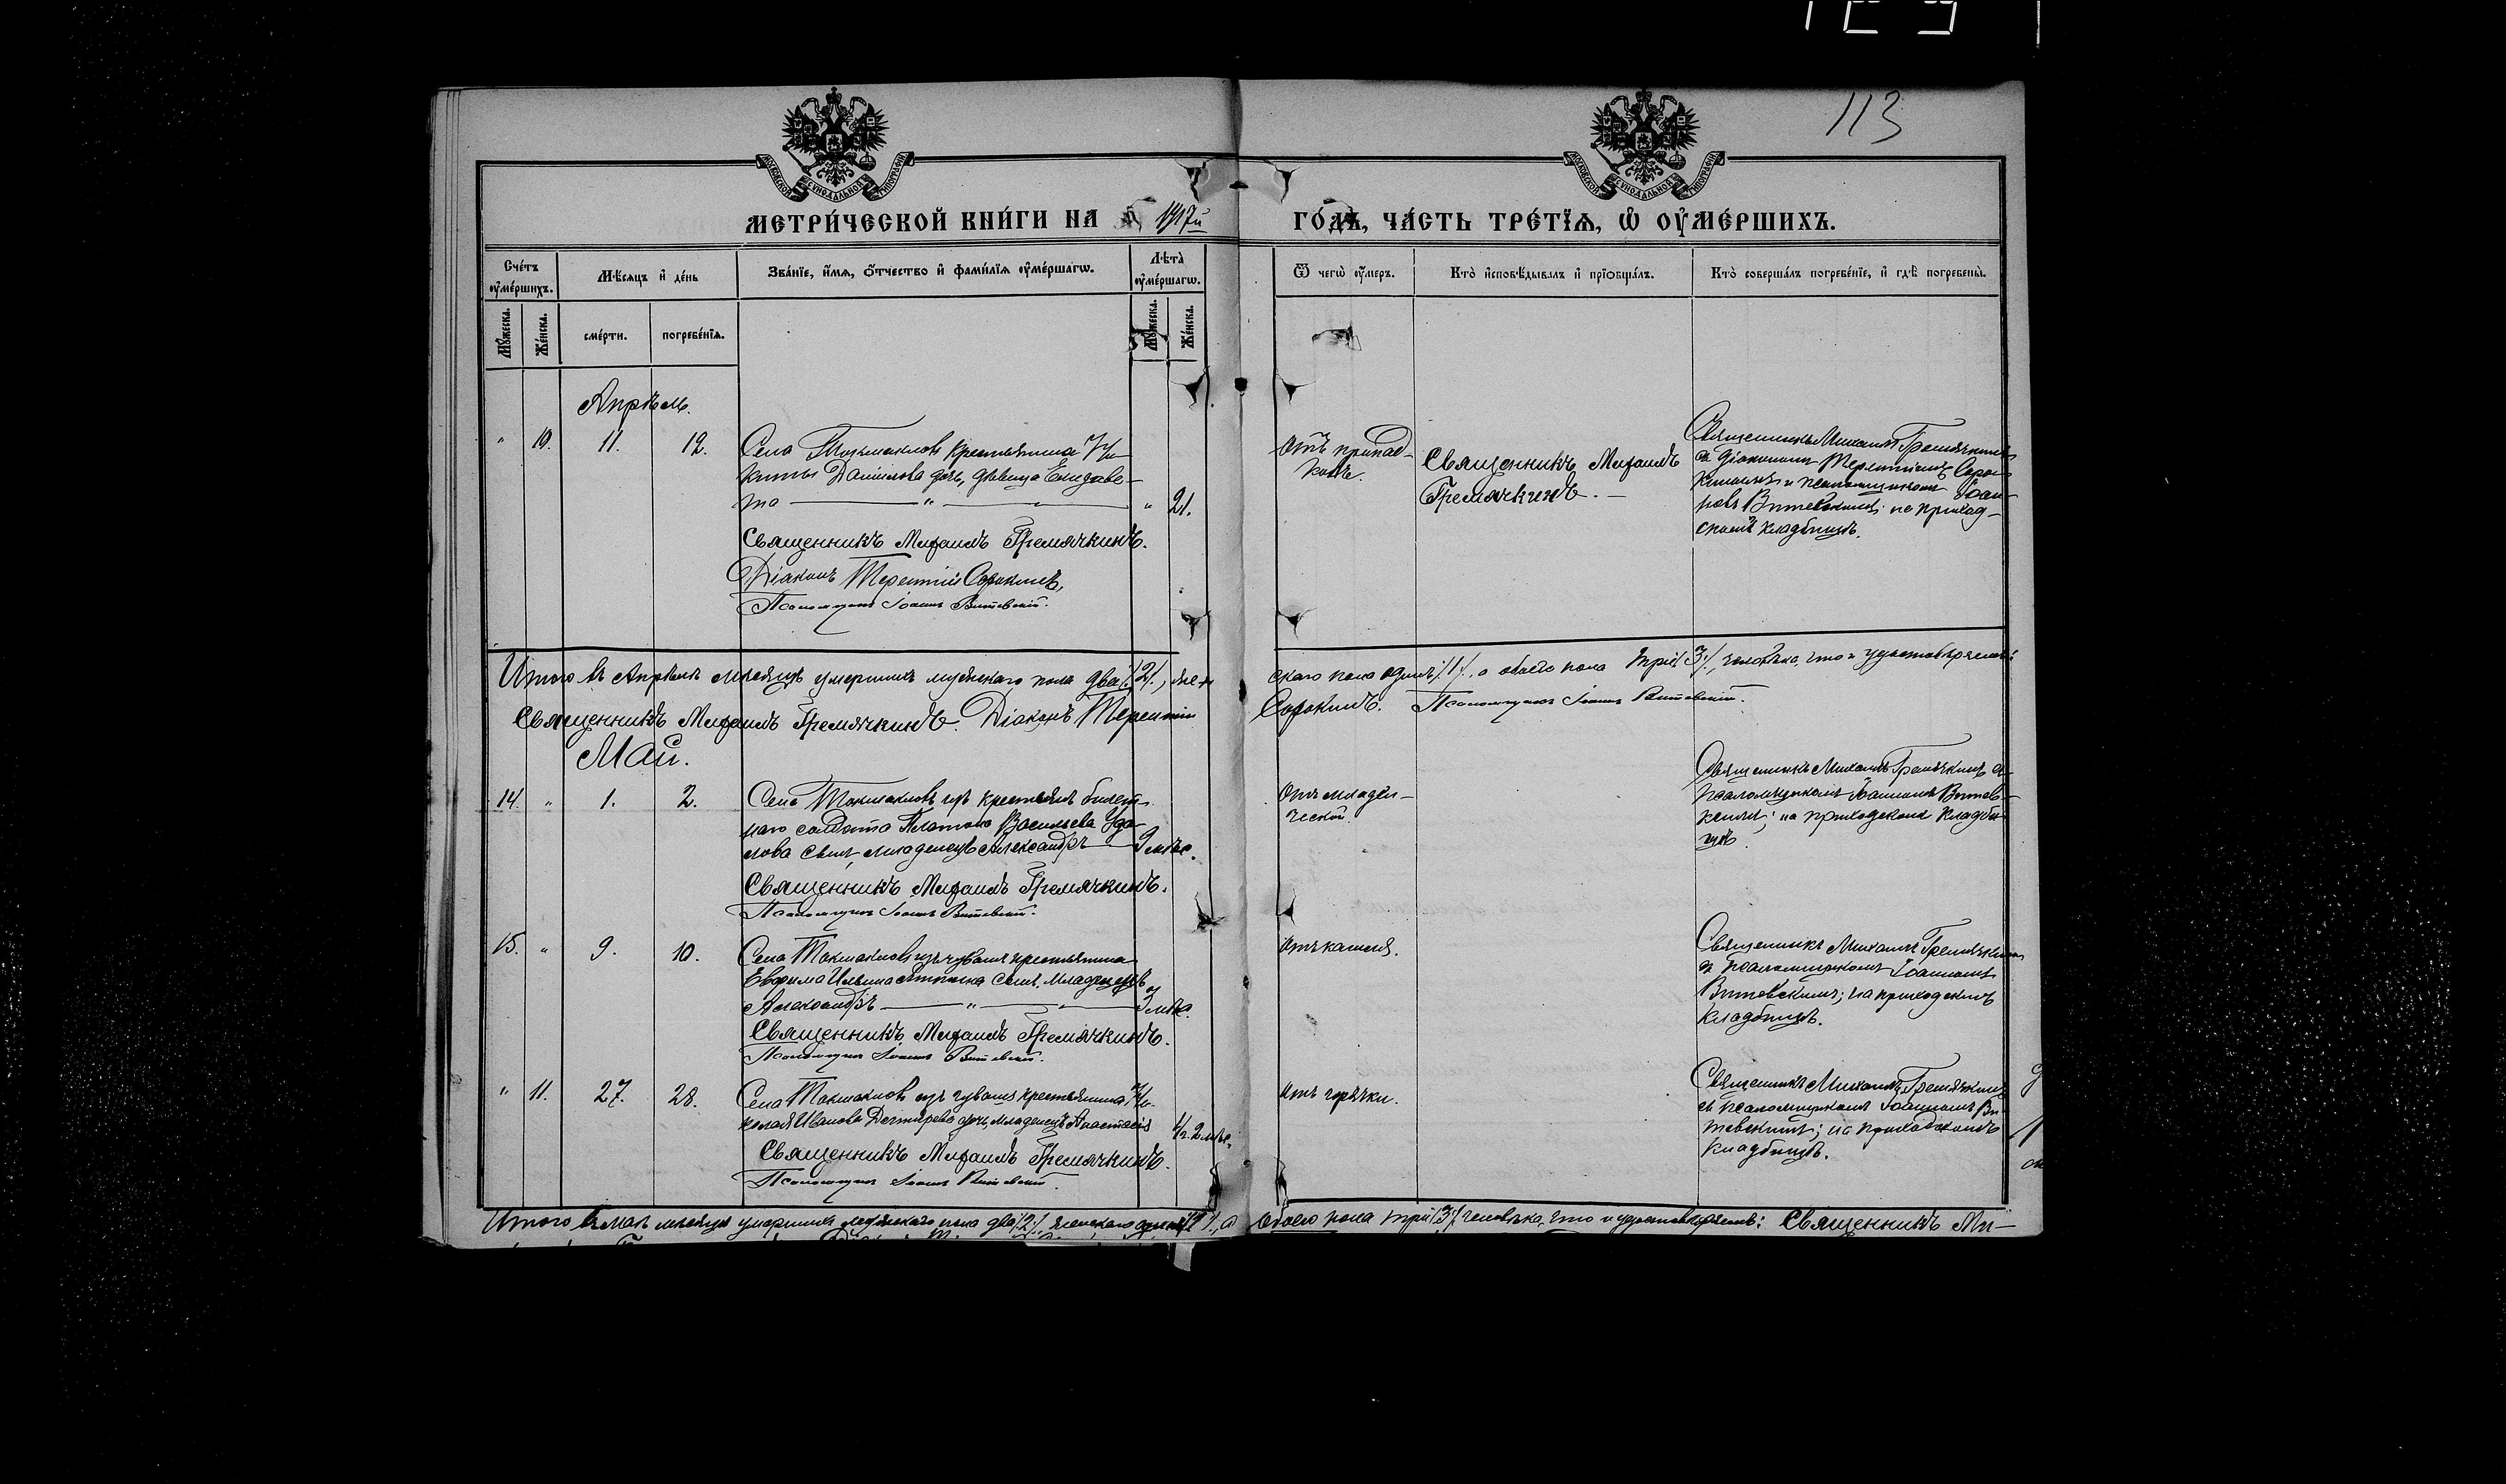 113
МОСКОВСКОЙ СѴНОДАЛЬНОЙ ТИПОГРАФІИ
МОСКОВСКОЙ СѴНОДАЛЬНОЙ ТИПОГРАФІИ
МЕТРИ́ЧЕСКОЙ КНИ́ГИ НА 1917й ГО́ДЪ, ЧА́СТЬ ТРЕ́ТЇѦ, Ѡ҆ ОУ҆МЕ́РШИХЪ.
Счéтъ оу҆мéршихъ.
Мѣ́сяцъ и҆ дéнь
Звáнїе, и҆́мѧ, ѻ҆́тчество и҆ фамѝлїѧ оу҆мéршагѡ.
Лѣ́та оу҆мéршагѡ.
Ѿ чегѡ̀ оу҆́меръ.
Ктò и҆сповѣ́дывалъ и҆ прїѡбщáлъ.
Ктò совершáлъ погребéнїе, и҆ гдѣ̀ погребены̀.
Мꙋ́жеска.
Жéнска.
смéрти.
погребéнїѧ.
Мꙋ́жеска.
Жéнска.
Апрѣль.
" 10. 11. 12.
Села Токмаклов крестьянина Ни-
киты Данилова дочь, дѣвица Елизаве-
та " " 21.
Священникъ Михаилъ Гремячкинъ.
Діаконъ Терентій Сорокинъ,
Псаломщикъ Іоаннъ Витевскій.
Отъ припад-
ковъ.
Священникъ Михаилъ
Гремячкинъ.
Священникъ Михаилъ Гремячкинъ
съ діакономъ Терентіемъ Соро-
кинымъ и псаломщикомъ Іоан-
номъ Витевскимъ; на приход-
скомъ кладбищѣ.
Итого въ Апрѣлѣ мѣсяцѣ умершихъ мужскаго пола два /2/, жен-
скаго пола одинъ /1/, а обоего пола три /3/, человѣка, что и удостовѣряемъ:
Священникъ Михаилъ Гремячкинъ. Діаконъ Терентій
Сорокинъ. Псаломщикъ Іоаннъ Витевскій.
Май.
14. " 1. 2.
Села Токмаклов изъ крестьянъ билет-
наго солдата Платона Васильева Уда-
лова сынъ, младенецъ Александръ 9 мѣс.
Священникъ Михаилъ Гремячкинъ.
Псаломщикъ Іоаннъ Витевскій.
Отъ младен-
ческой.
Священникъ Михаилъ Гремячкинъ съ
псаломщикомъ Іоанномъ Витев-
скимъ; на приходскомъ кладби-
щѣ.
15. " 9. 10.
Села Токмаклов изъ чувашъ крестьянина
Ефрема Ильина сынъ, младенецъ
Александръ " 3 мѣс.
Священникъ Михаилъ Гремячкинъ.
Псаломщикъ Іоаннъ Витевскій.
Отъ кашля.
Священникъ Михаилъ Гремячкинъ
съ псаломщикомъ Іоанномъ
Витевскимъ; на приходскомъ
кладбищѣ.
" 11. 27. 28.
Села Токмаклов изъ чувашъ крестьянина Ни-
колая Иванова Дегтярева дочь, младенецъ Анастасія 1 г. 2 мѣс.
Священникъ Михаилъ Гремячкинъ.
Псаломщикъ Іоаннъ Витевскій.
Отъ горячки.
Священникъ Михаилъ Гремячкинъ
съ псаломщикомъ Іоанномъ Ви-
тевскимъ; на приходскомъ
кладбищѣ.
Итого въ маѣ мѣсяцѣ умершихъ мужскаго пола два /2/, женскаго одинъ /1/, а обоего пола три /3/ человѣка, что и удостовѣряемъ: Священникъ Ми-